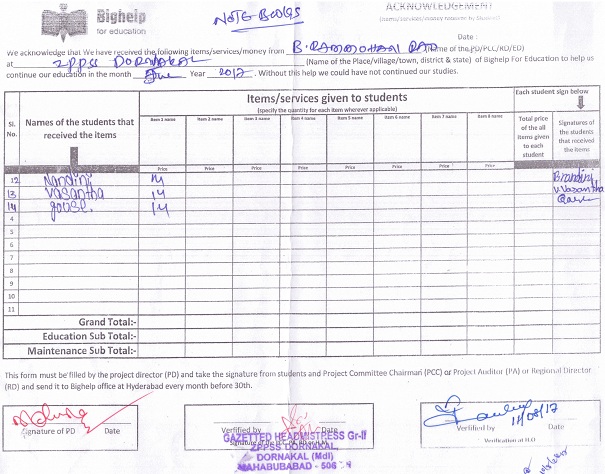 Bighelp
for education
NOTE Books
ACKNOWLEDGEMENT
(items/services/money received by Student)
Date :
We acknowledge that We have received the following items/services/money from B. RAMMOHAN RAO (Name of the PD/PLC/RD/ED)
at ZPPSS DORNAKAL (Name of the Place/village/town, district & state) of Bighelp For Education to help us
continue our education in the month June Year 2017. Without this help we could have not continued our studies.
Sl. No. Names of the students that received the items
Items/services given to students
(specify the quantity for each item wherever applicable)
Each student sign below
Item 1 name Item 2 name Item 3 name Item 4 name Item 5 name Item 6 name Item 7 name Item 8 name
Total price of the all items given to each student
Signatures of the students that received the items
Price Price Price Price Price Price Price Price
12 Nandini 14
13 Vasantha 14 V.Vasantha
14 gouse. 14
4
5
6
7
8
9
10
11
Grand Total:-
Education Sub Total:-
Maintenance Sub Total:-
This form must be filled by the project director (PD) and take the signature from students and Project Committee Chairman (PCC) or Project Auditor (PA) or Regional Director
(RD) and send it to Bighelp office at Hyderabad every month before 30th.
Signature of PD Date
Verified by Date
GAZETTED HEADMISTRESS Gr-II
ZPPSS DORNAKAL,
DORNAKAL (Mdl)
MAHABUBABAD - 506
11/08/17
Verified by Date
Verification at H.O